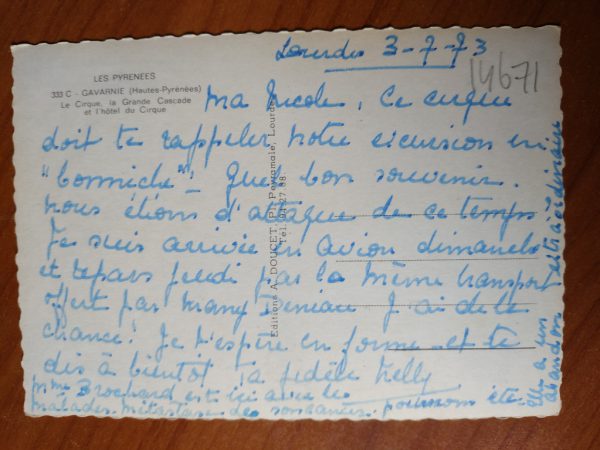 LES PYRENEES
333 C - GAVARNIE (Hautes-Pyrénées)
Le Cirque, la Grande Cascade
et l'hôtel du Cirque
Lourdes 3-7-73
14671
Ma Nicole, Ce cirque
doit te rappeler notre excursion en
"bonniche" - Quel bon souvenir.
nous étions d'attaque de ce temps
Je suis arrivée en avion dimanche
et repars jeudi par le même transport
offert par Many Deniau J'ai de la
chance! Je t'espère en forme et te
dis à bientôt Ta fidèle Nelly
Mme Brochard est ici avec les
malades. métastase poumons
Elle a un
abandon extraordinaire
Editions A. DOUCET, Pl. Peyramale, Lourdes